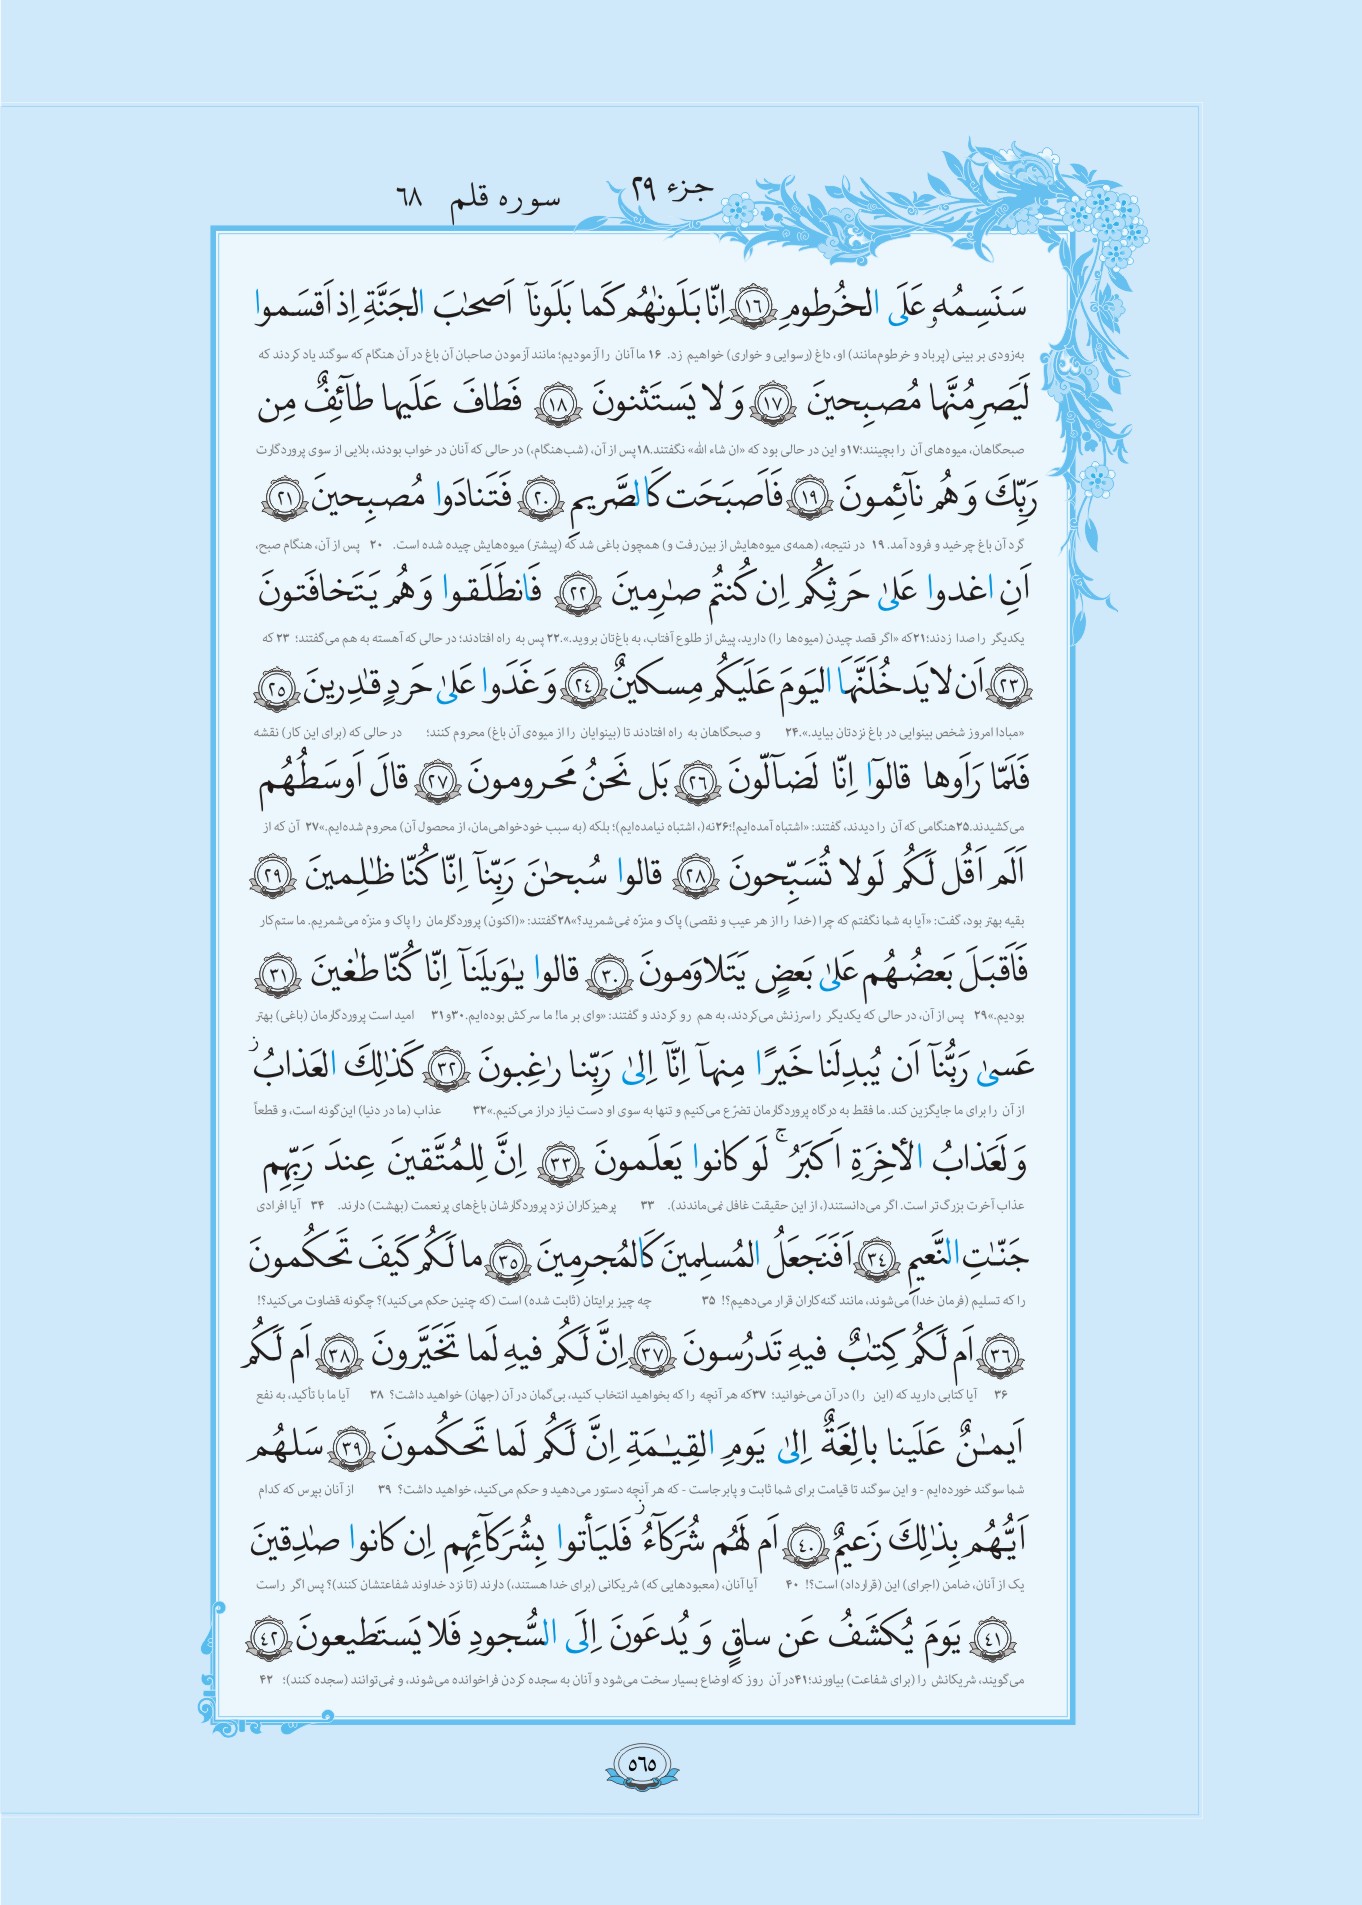 جزء ۲۹
سوره قلم ٦٨
سَنَسِمُهُۥ عَلَى الخُرطومِ ﴿١٦﴾ اِنّا بَلَوناهُم كَما بَلَونآ اَصحٰبَ الجَنَّةِ اِذ اَقسَموا
به‌زودی بر بینی (پرباد و خرطوم‌مانند) او، داغ (رسوایی و خواری) خواهیم زد. ۱۶ ما آنان را آزمودیم؛ مانند آزمودن صاحبان آن باغ در آن هنگام که سوگند یاد کردند که
لَيَصرِمُنَّها مُصبِحينَ ﴿١٧﴾ وَ لا يَستَثنونَ ﴿١٨﴾ فَطافَ عَلَيها طآئِفٌ مِن
صبحگاهان، میوه‌های آن را بچینند؛۱۷و این در حالی بود که «ان شاء الله» نگفتند.۱۸پس از آن، (شب‌هنگام،) در حالی که آنان در خواب بودند، بلایی از سوی پروردگارت
رَبِّكَ وَ هُم نآئِمونَ ﴿١٩﴾ فَاَصبَحَت كَالصَّريمِ ﴿٢٠﴾ فَتَنادَوا مُصبِحينَ ﴿٢١﴾
گرد آن باغ چرخید و فرود آمد. ۱۹ در نتیجه، (همه‌ی میوه‌هایش از بین‌رفت و) همچون باغی شد که (پیشتر) میوه‌هایش چیده شده است. ۲۰ پس از آن، هنگام صبح،
اَنِ اغدوا عَلىٰ حَرثِكُم اِن كُنتُم صٰرِمينَ ﴿٢٢﴾ فَانطَلَقوا وَ هُم يَتَخافَتونَ
یکدیگر را صدا زدند؛۲۱که «اگر قصد چیدن (میوه‌ها را) دارید، پیش از طلوع آفتاب، به باغ‌تان بروید.».۲۲ پس به راه افتادند؛ در حالی که آهسته به هم می‌گفتند؛ ۲۳ که
﴿٢٣﴾ اَن لا يَدخُلَنَّهَا اليَومَ عَلَيكُم مِسكينٌ ﴿٢٤﴾ وَ غَدَوا عَلىٰ حَردٍ قٰدِرينَ ﴿٢٥﴾
«مبادا امروز شخص بینوایی در باغ نزدتان بیاید.».۲۴ و صبحگاهان به راه افتادند تا (بینوایان را از میوه‌ی آن باغ) محروم کنند؛ در حالی که (برای این کار) نقشه
فَلَمّا رَاَوها قالوٓا اِنّا لَضآلّونَ ﴿٢٦﴾ بَل نَحنُ مَحرومونَ ﴿٢٧﴾ قالَ اَوسَطُهُم
می‌کشیدند.۲۵هنگامی که آن را دیدند، گفتند: «اشتباه آمده‌ایم!؛۲۶نه(، اشتباه نیامده‌ایم)؛ بلکه (به سبب خودخواهی‌مان، از محصول آن) محروم شده‌ایم.»۲۷ آن که از
اَلَم اَقُل لَكُم لَولا تُسَبِّحونَ ﴿٢٨﴾ قالوا سُبحٰنَ رَبِّنآ اِنّا كُنّا ظٰلِمينَ ﴿٢٩﴾
بقیه بهتر بود، گفت: «آیا به شما نگفتم که چرا (خدا را از هر عیب و نقصی) پاک و منزّه نمی‌شمرید؟»۲۸گفتند: «(اکنون) پروردگارمان را پاک و منزّه می‌شمریم. ما ستم‌کار
فَاَقبَلَ بَعضُهُم عَلىٰ بَعضٍ يَتَلاوَمونَ ﴿٣٠﴾ قالوا يٰوَيلَنآ اِنّا كُنّا طٰغينَ ﴿٣١﴾
بودیم.»۲۹ پس از آن، در حالی که یکدیگر را سرزنش می‌کردند، به هم رو کردند و گفتند: «وای بر ما! ما سرکش بوده‌ایم.۳۰و۳۱ امید است پروردگارمان (باغی) بهتر
عَسىٰ رَبُّنآ اَن يُبدِلَنا خَيرًا مِنهآ اِنّآ اِلىٰ رَبِّنا رٰغِبونَ ﴿٣٢﴾ كَذٰلِكَ العَذابُ ز
از آن را برای ما جایگزین کند. ما فقط به درگاه پروردگارمان تضرّع می‌کنیم و تنها به سوی او دست نیاز دراز می‌کنیم.»۳۲ عذاب (ما در دنیا) این‌گونه است، و قطعاً
وَ لَعَذابُ الأخِرَةِ اَكبَرُ ۚ لَو كانوا يَعلَمونَ ﴿٣٣﴾ اِنَّ لِلمُتَّقينَ عِندَ رَبِّهِم
عذاب آخرت بزرگ‌تر است. اگر می‌دانستند(، از این حقیقت غافل نمی‌ماندند). ۳۳ پرهیزکاران نزد پروردگارشان باغ‌های پرنعمت (بهشت) دارند. ۳۴ آیا افرادی
جَنّٰتِ النَّعيمِ ﴿٣٤﴾ اَفَنَجعَلُ المُسلِمينَ كَالمُجرِمينَ ﴿٣٥﴾ ما لَكُم كَيفَ تَحكُمونَ
را که تسلیم (فرمان خدا) می‌شوند، مانند گنه‌کاران قرار می‌دهیم؟! ۳۵ چه چیز برایتان (ثابت شده) است (که چنین حکم می‌کنید)؟ چگونه قضاوت می‌کنید؟!
﴿٣٦﴾ اَم لَكُم كِتٰبٌ فيهِ تَدرُسونَ ﴿٣٧﴾ اِنَّ لَكُم فيهِ لَما تَخَيَّرونَ ﴿٣٨﴾ اَم لَكُم
۳۶ آیا کتابی دارید که (این را) در آن می‌خوانید؛ ۳۷که هر آنچه را که بخواهید انتخاب کنید، بی‌گمان در آن (جهان) خواهید داشت؟ ۳۸ آیا ما با تأکید، به نفع
اَيمـٰنٌ عَلَينا بالِغَةٌ اِلىٰ يَومِ القِيـٰمَةِ اِنَّ لَكُم لَما تَحكُمونَ ﴿٣٩﴾ سَلهُم
شما سوگند خورده‌ایم - و این سوگند تا قیامت برای شما ثابت و پابرجاست - که هر آنچه دستور می‌دهید و حکم می‌کنید، خواهید داشت؟ ۳۹ از آنان بپرس که کدام
اَيُّهُم بِذٰلِكَ زَعيمٌ ﴿٤٠﴾ اَم لَهُم شُرَكآءُ ز فَليَأتوا بِشُرَكآئِهِم اِن كانوا صٰدِقينَ
یک از آنان، ضامن (اجرای) این (قرارداد) است؟! ۴۰ آیا آنان، (معبودهایی که) شریکانی (برای خدا هستند،) دارند (تا نزد خداوند شفاعتشان کنند)؟ پس اگر راست
﴿٤١﴾ يَومَ يُكشَفُ عَن ساقٍ وَ يُدعَونَ اِلَى السُّجودِ فَلا يَستَطيعونَ ﴿٤٢﴾
می‌گویند، شریکانش را (برای شفاعت) بیاورند؛۴۱در آن روز که اوضاع بسیار سخت می‌شود و آنان به سجده کردن فراخوانده می‌شوند، و نمی‌توانند (سجده کنند)؛ ۴۲
٥٦٥